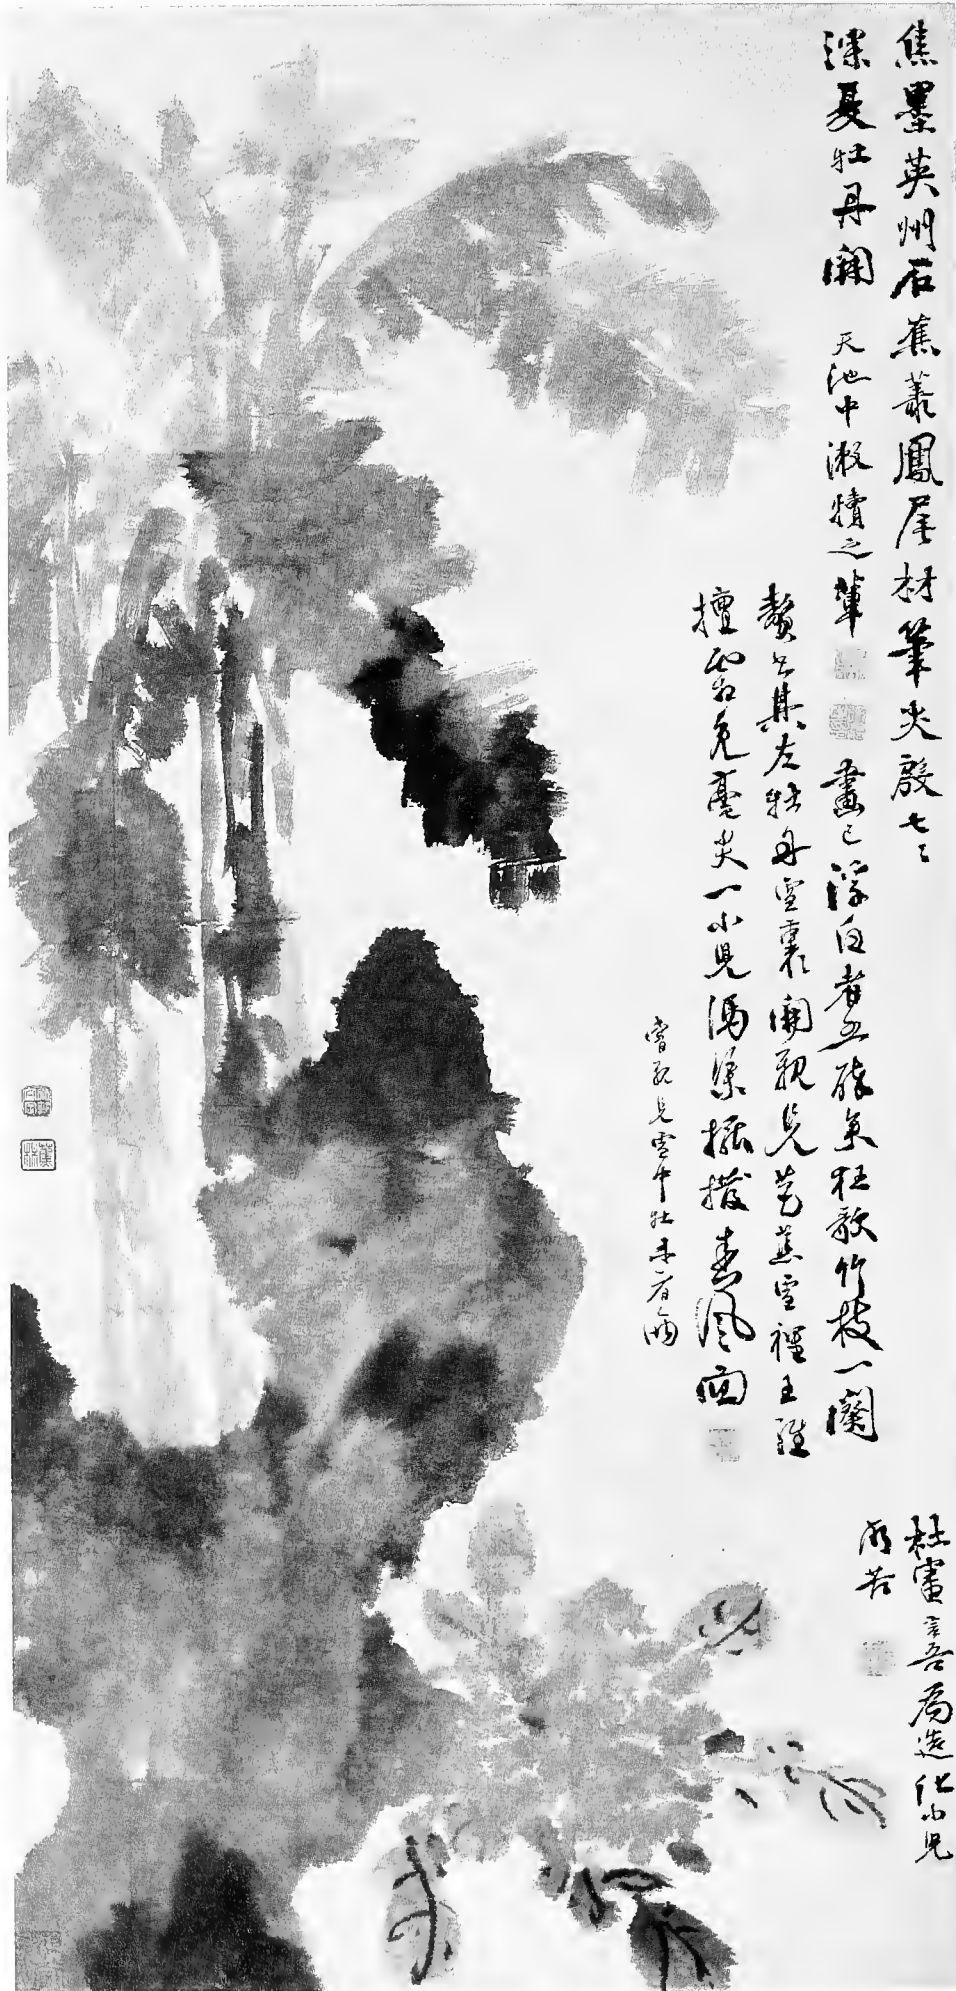 焦墨英州石蕉叢鳳尾材筆尖殷七〻
深夏牡丹開
天池中漱犢之輩
畫已浮白者五醉矣狂歌竹枝一闋
贅書其左牡丹雪裏開親見芭蕉雪裡王維
擅霜兔毫尖一小兒馮渠擺撥春風面
嘗親見雪中牡丹者兩
杜審言吾為造化小兒
所苦